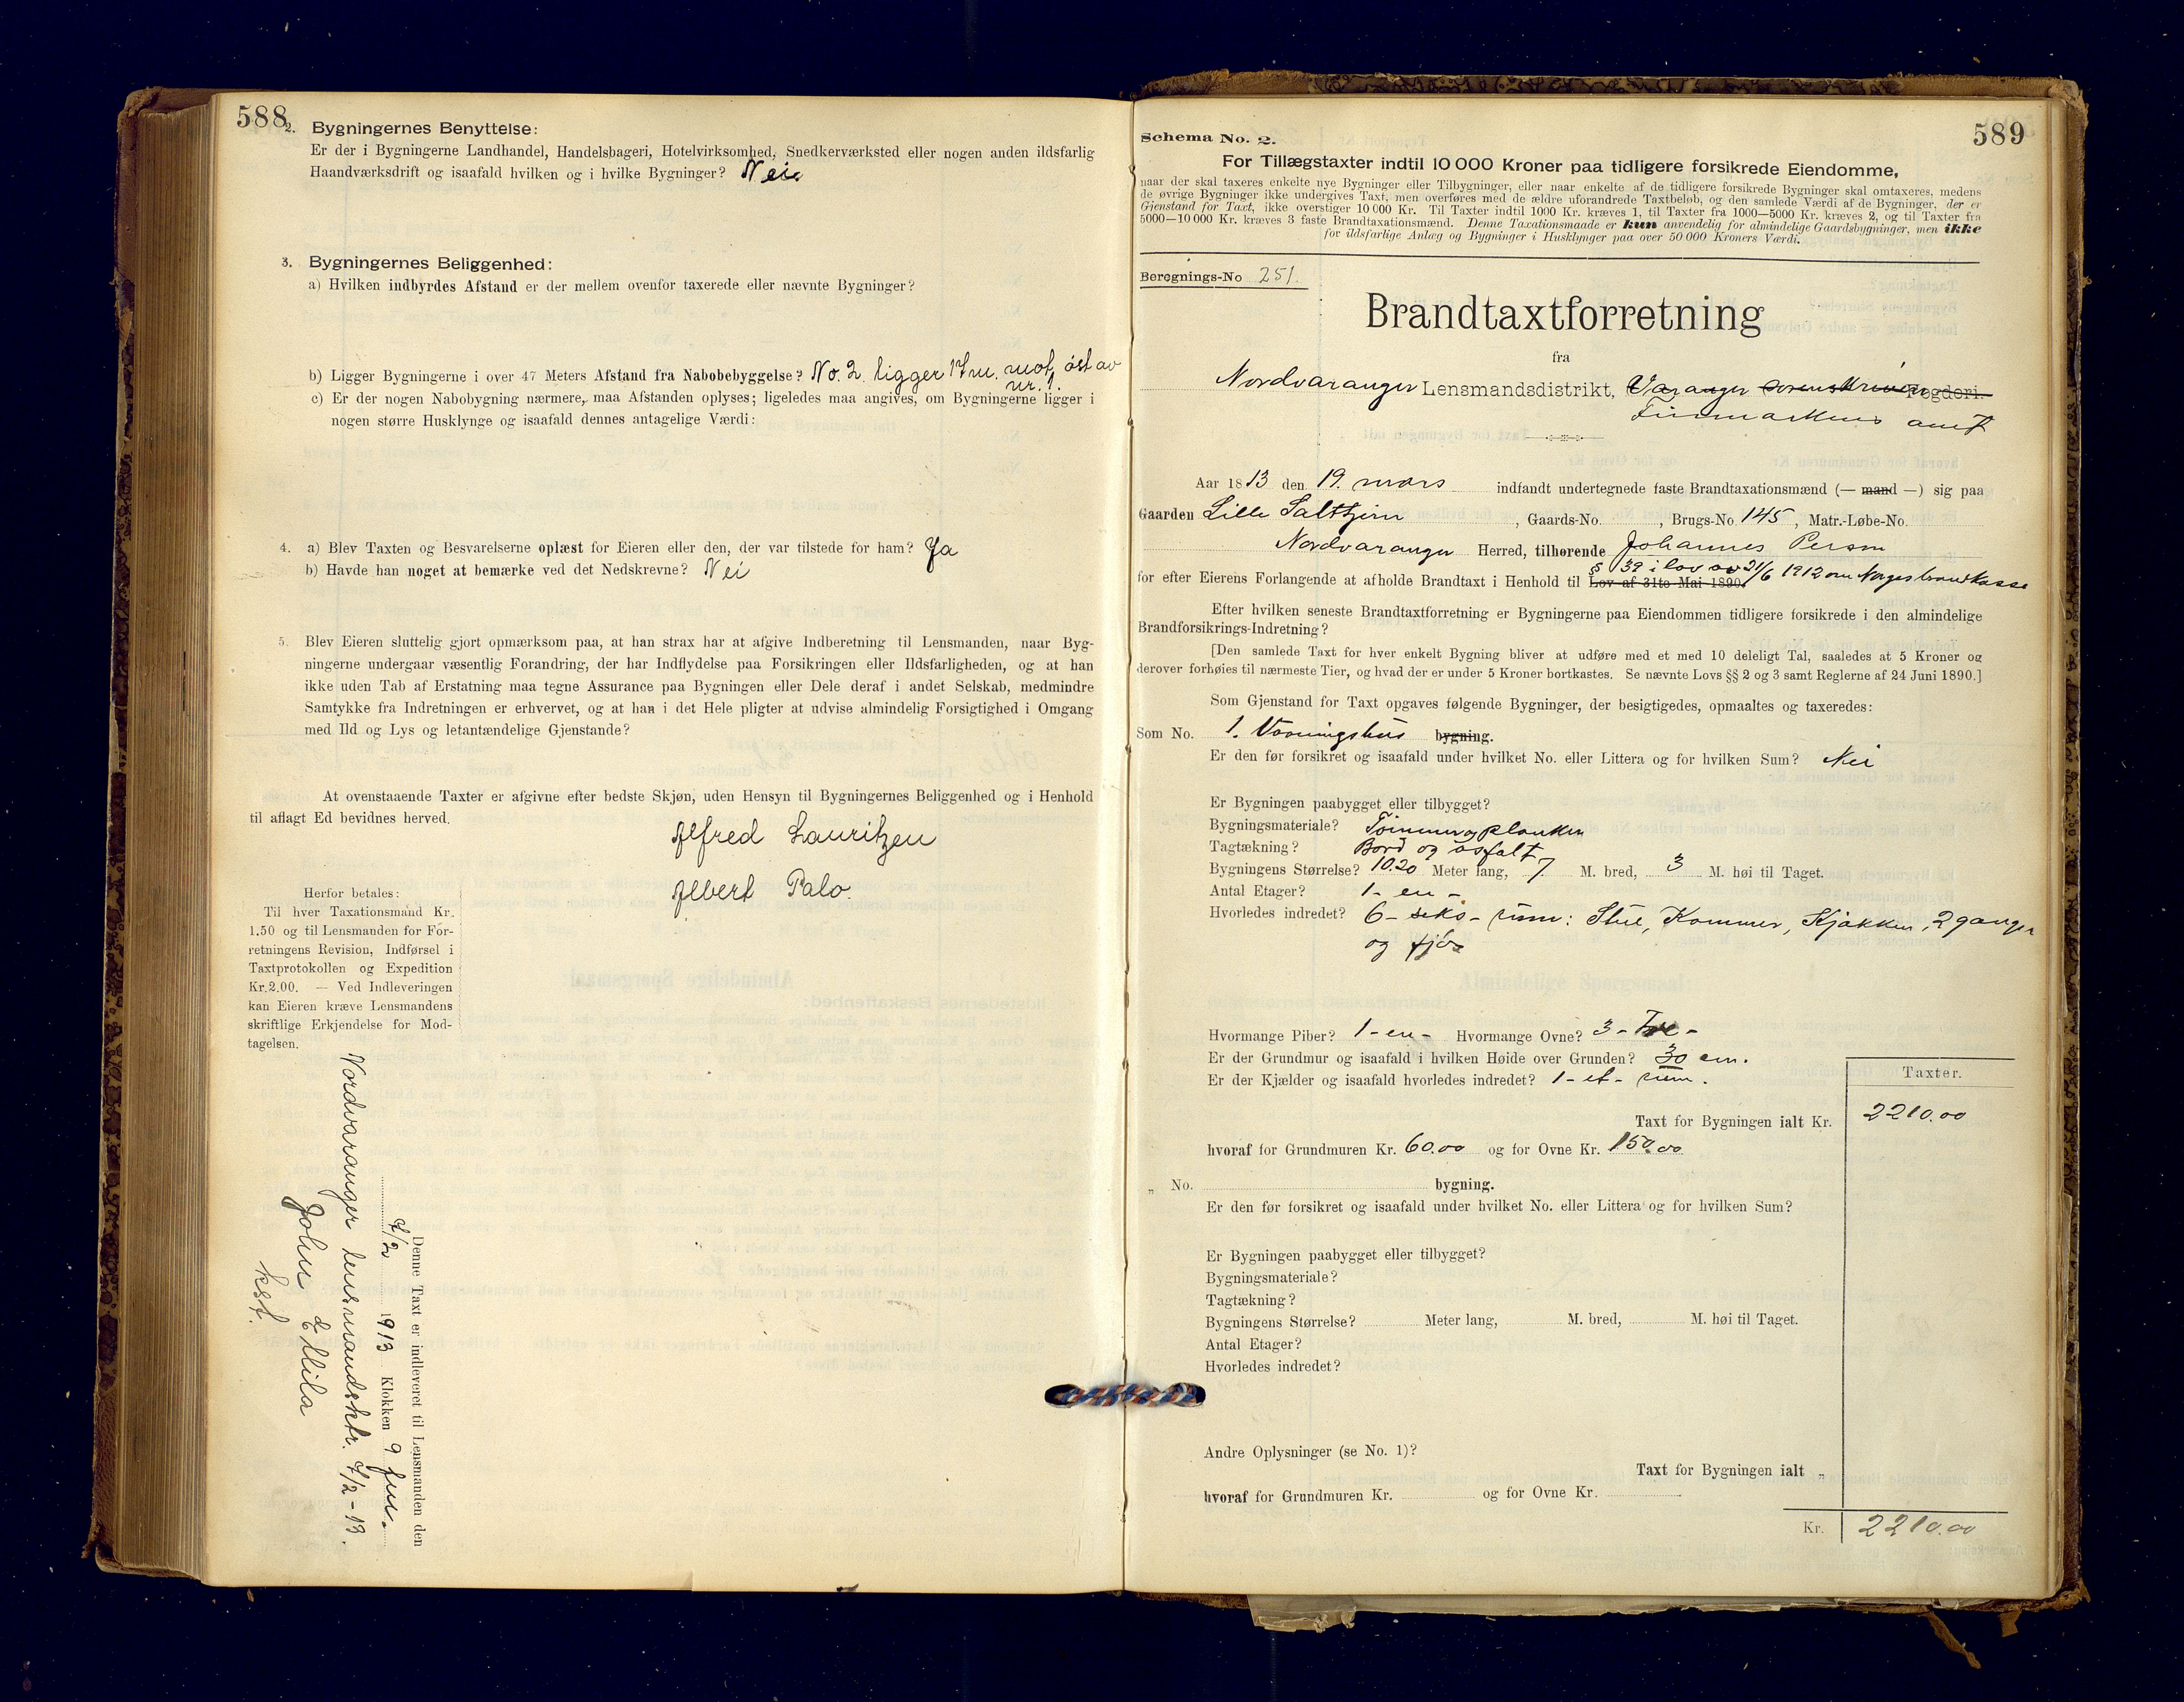 588
2. Bygningernes Benyttelse:
Er der i Bygningerne Landhandel, Handelsbageri, Hotelvirksomhed, Snedkerværksted eller nogen anden ildsfarlig
Haandværksdrift og isaafald hvilken og i hvilke Bygninger? Nei
3. Bygningernes Beliggenhed:
a) Hvilken indbyrdes Afstand er der mellem ovenfor taxerede eller nævnte Bygninger?
b) Ligger Bygningerne i over 47 Meters Afstand fra Nabobebyggelse? No. 2 ligger 17 m. mot øst av
nr. 1.
c) Er der nogen Nabobygning nærmere, maa Afstanden oplyses; ligeledes maa angives, om Bygningerne ligger i
nogen større Husklynge og isaafald dennes antagelige Værdi:
4. a) Blev Taxten og Besvarelserne oplæst for Eieren eller den, der var tilstede for ham? Ja
b) Havde han noget at bemærke ved det Nedskrevne? Nei
5. Blev Eieren sluttelig gjort opmærksom paa, at han strax har at afgive Indberetning til Lensmanden, naar Byg-
ningerne undergaar væsentlig Forandring, der har Indflydelse paa Forsikringen eller Ildsfarligheden, og at han
ikke uden Tab af Erstatning maa tegne Assurance paa Bygningen eller Dele deraf i andet Selskab, medmindre
Samtykke fra Indretningen er erhvervet, og at han i det Hele pligter at udvise almindelig Forsigtighed i Omgang
med Ild og Lys og letantændelige Gjenstande?
At ovenstaaende Taxter er afgivne efter bedste Skjøn, uden Hensyn til Bygningernes Beliggenhed og i Henhold
til aflagt Ed bevidnes herved.
Alfred Lauritzen
Albert Palo.
Herfor betales:
Til hver Taxationsmand Kr.
1.50 og til Lensmanden for For-
retningens Revision, Indførsel i
Taxtprotokollen og Expedition
Kr.2.00. — Ved Indleveringen
kan Eieren kræve Lensmandens
skriftlige Erkjendelse for Mod-
tagelsen.
Denne Taxt er indleveret til Lensmanden den
7/2 1913 Klokken 9 fm.
Nordvaranger lensmandsktr. 7/2 - 13.
John
kst.
589
Schema No. 2.
For Tillægstaxter indtil 10 000 Kroner paa tidligere forsikrede Eiendomme,
naar der skal taxeres enkelte nye Bygninger eller Tilbygninger, eller naar enkelte af de tidligere forsikrede Bygninger skal omtaxeres, medens
de øvrige Bygninger ikke undergives Taxt, men overføres med de ældre uforandrede Taxtbeløb, og den samlede Værdi af de Bygninger, der er
Gjenstand for Taxt, ikke overstiger 10 000 Kr. Til Taxter indtil 1000 Kr. kræves 1, til Taxter fra 1000—5000 Kr. kræves 2, og til Taxter fra
5000—10 000 Kr. kræves 3 faste Brandtaxationsmænd. Denne Taxationsmaade er kun anvendelig for almindelige Gaardsbygninger, men ikke
for ildsfarlige Anlæg og Bygninger i Husklynger paa over 50 000 Kroners Værdi.
Beregnings-No 251.
Brandtaxtforretning
fra
Nordvaranger Lensmandsdistrikt, Varanger sorenskriveri Fogderi.
Finmarkens amt
Aar 1813 den 19. mars indfandt undertegnede faste Brandtaxationsmænd (— mand —) sig paa
Gaarden Lille Salttjern, Gaards-No. , Brugs-No 145, Matr.-Løbe-No.
Nordvaranger Herred, tilhørende Johannes Person
§ 39 i lov av 21/6 1912 om Norges brandkasse
for efter Eierens Forlangende at afholde Brandtaxt i Henhold til Lov af 31te Mai 1890.
Efter hvilken seneste Brandtaxtforretning er Bygningerne paa Eiendommen tidligere forsikrede i den almindelige
Brandforsikrings-Indretning?
[Den samlede Taxt for hver enkelt Bygning bliver at udføre med et med 10 deleligt Tal, saaledes at 5 Kroner og
derover forhøies til nærmeste Tier, og hvad der er under 5 Kroner bortkastes. Se nævnte Lovs §§ 2 og 3 samt Reglerne af 24 Juni 1890.]
Som Gjenstand for Taxt opgaves følgende Bygninger, der besigtigedes, opmaaltes og taxeredes:
Som No. 1. Vaaningshus bygning.
Er den før forsikret og isaafald under hvilket No. eller Littera og for hvilken Sum? Nei
Er Bygningen paabygget eller tilbygget?
Bygningsmateriale? Tømmer og planker
Tagtækning? Bord og asfalt
Bygningens Størrelse? 10.20 Meter lang, 7 M. bred, 3 M. høi til Taget.
Antal Etager? 1 - en -
Hvorledes indredet? 6 - seks - rum: Stue, Kammer, Kjøkken, 2 ganger
og fjøs
Hvormange Piber? 1 - en - Hvormange Ovne? 3 - Tre -
Er der Grundmur og isaafald i hvilken Høide over Grunden? 30 cm.
Er der Kjælder og isaafald hvorledes indredet? 1 - et - rum.
Taxter.
Taxt for Bygningen ialt Kr. 2210.00
hvoraf for Grundmuren Kr. 60.00 og for Ovne Kr. 150.00
„ No. bygning.
Er den før forsikret og isaafald under hvilket No. eller Littera og for hvilken Sum?
Er Bygningen paabygget eller tilbygget?
Bygningsmateriale?
Tagtækning?
Bygningens Størrelse? Meter lang, M. bred, M. høi til Taget.
Antal Etager?
Hvorledes indredet?
Andre Oplysninger (se No. 1)?
Taxt for Bygningen ialt „
hvoraf for Grundmuren Kr. og for Ovne Kr.
Kr. 2210.00